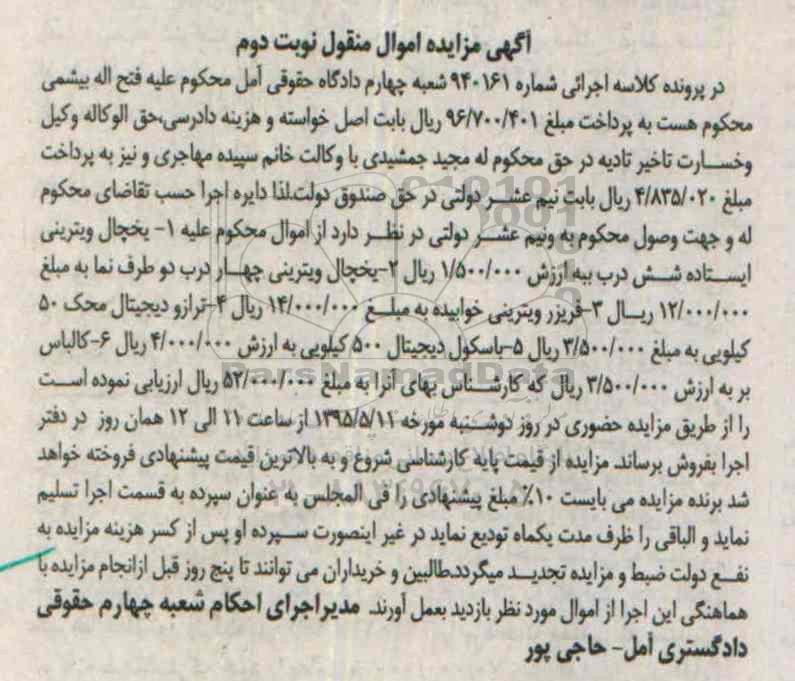 آگهی مزایده اموال منقول نوبت دوم
در پرونده کلاسه اجرائی شماره ۹۴۰۱۶۱ شعبه چهارم دادگاه حقوقی آمل محکوم علیه فتح اله بیشمی
محکوم هست به پرداخت مبلغ ۹۶/۷۰۰/۴۰۱ ریال بابت اصل خواسته و هزینه دادرسی،حق الوکاله وکیل
وخسارت تاخیر تادیه در حق محکوم له مجید جمشیدی با وکالت خانم سپیده مهاجری و نیز به پرداخت
مبلغ ۴/۸۳۵/۰۲۰ ریال بابت نیم عشر دولتی در حق صندوق دولت.لذا دایره اجرا حسب تقاضای محکوم
له و جهت وصول محکوم به ونیم عشر دولتی در نظر دارد از اموال محکوم علیه ۱- یخچال ویترینی
ایستاده شش درب به ارزش ۱/۵۰۰/۰۰۰ ریال ۲-یخچال ویترینی چهار درب دو طرف نما به مبلغ
۱۲/۰۰۰/۰۰۰ ریال ۳-فریزر ویترینی خوابیده به مبلغ ۱۴/۰۰۰/۰۰۰ ریال ۴-ترازو دیجیتال محک ۵۰
کیلویی به مبلغ ۳/۵۰۰/۰۰۰ ریال ۵-باسکول دیجیتال ۵۰۰ کیلویی به ارزش ۴/۰۰۰/۰۰۰ ریال ۶-کالباس
بر به ارزش ۳/۵۰۰/۰۰۰ ریال که کارشناس بهای آنرا به مبلغ ۵۲/۰۰۰/۰۰۰ ریال ارزیابی نموده است
را از طریق مزایده حضوری در روز دوشنبه مورخه ۱۳۹۵/۵/۱۱ از ساعت ۱۱ الی ۱۲ همان روز در دفتر
اجرا بفروش برساند. مزایده از قیمت پایه کارشناسی شروع و به بالاترین قیمت پیشنهادی فروخته خواهد
شد برنده مزایده می بایست ۱۰٪ مبلغ پیشنهادی را فی المجلس به عنوان سپرده به قسمت اجرا تسلیم
نماید و الباقی را ظرف مدت یکماه تودیع نماید در غیر اینصورت سپرده او پس از کسر هزینه مزایده به
نفع دولت ضبط و مزایده تجدید میگردد.طالبین و خریداران می توانند تا پنج روز قبل ازانجام مزایده با
هماهنگی این اجرا از اموال مورد نظر بازدید بعمل آورند. مدیراجرای احکام شعبه چهارم حقوقی
دادگستری آمل- حاجی پور
ParsNamadData